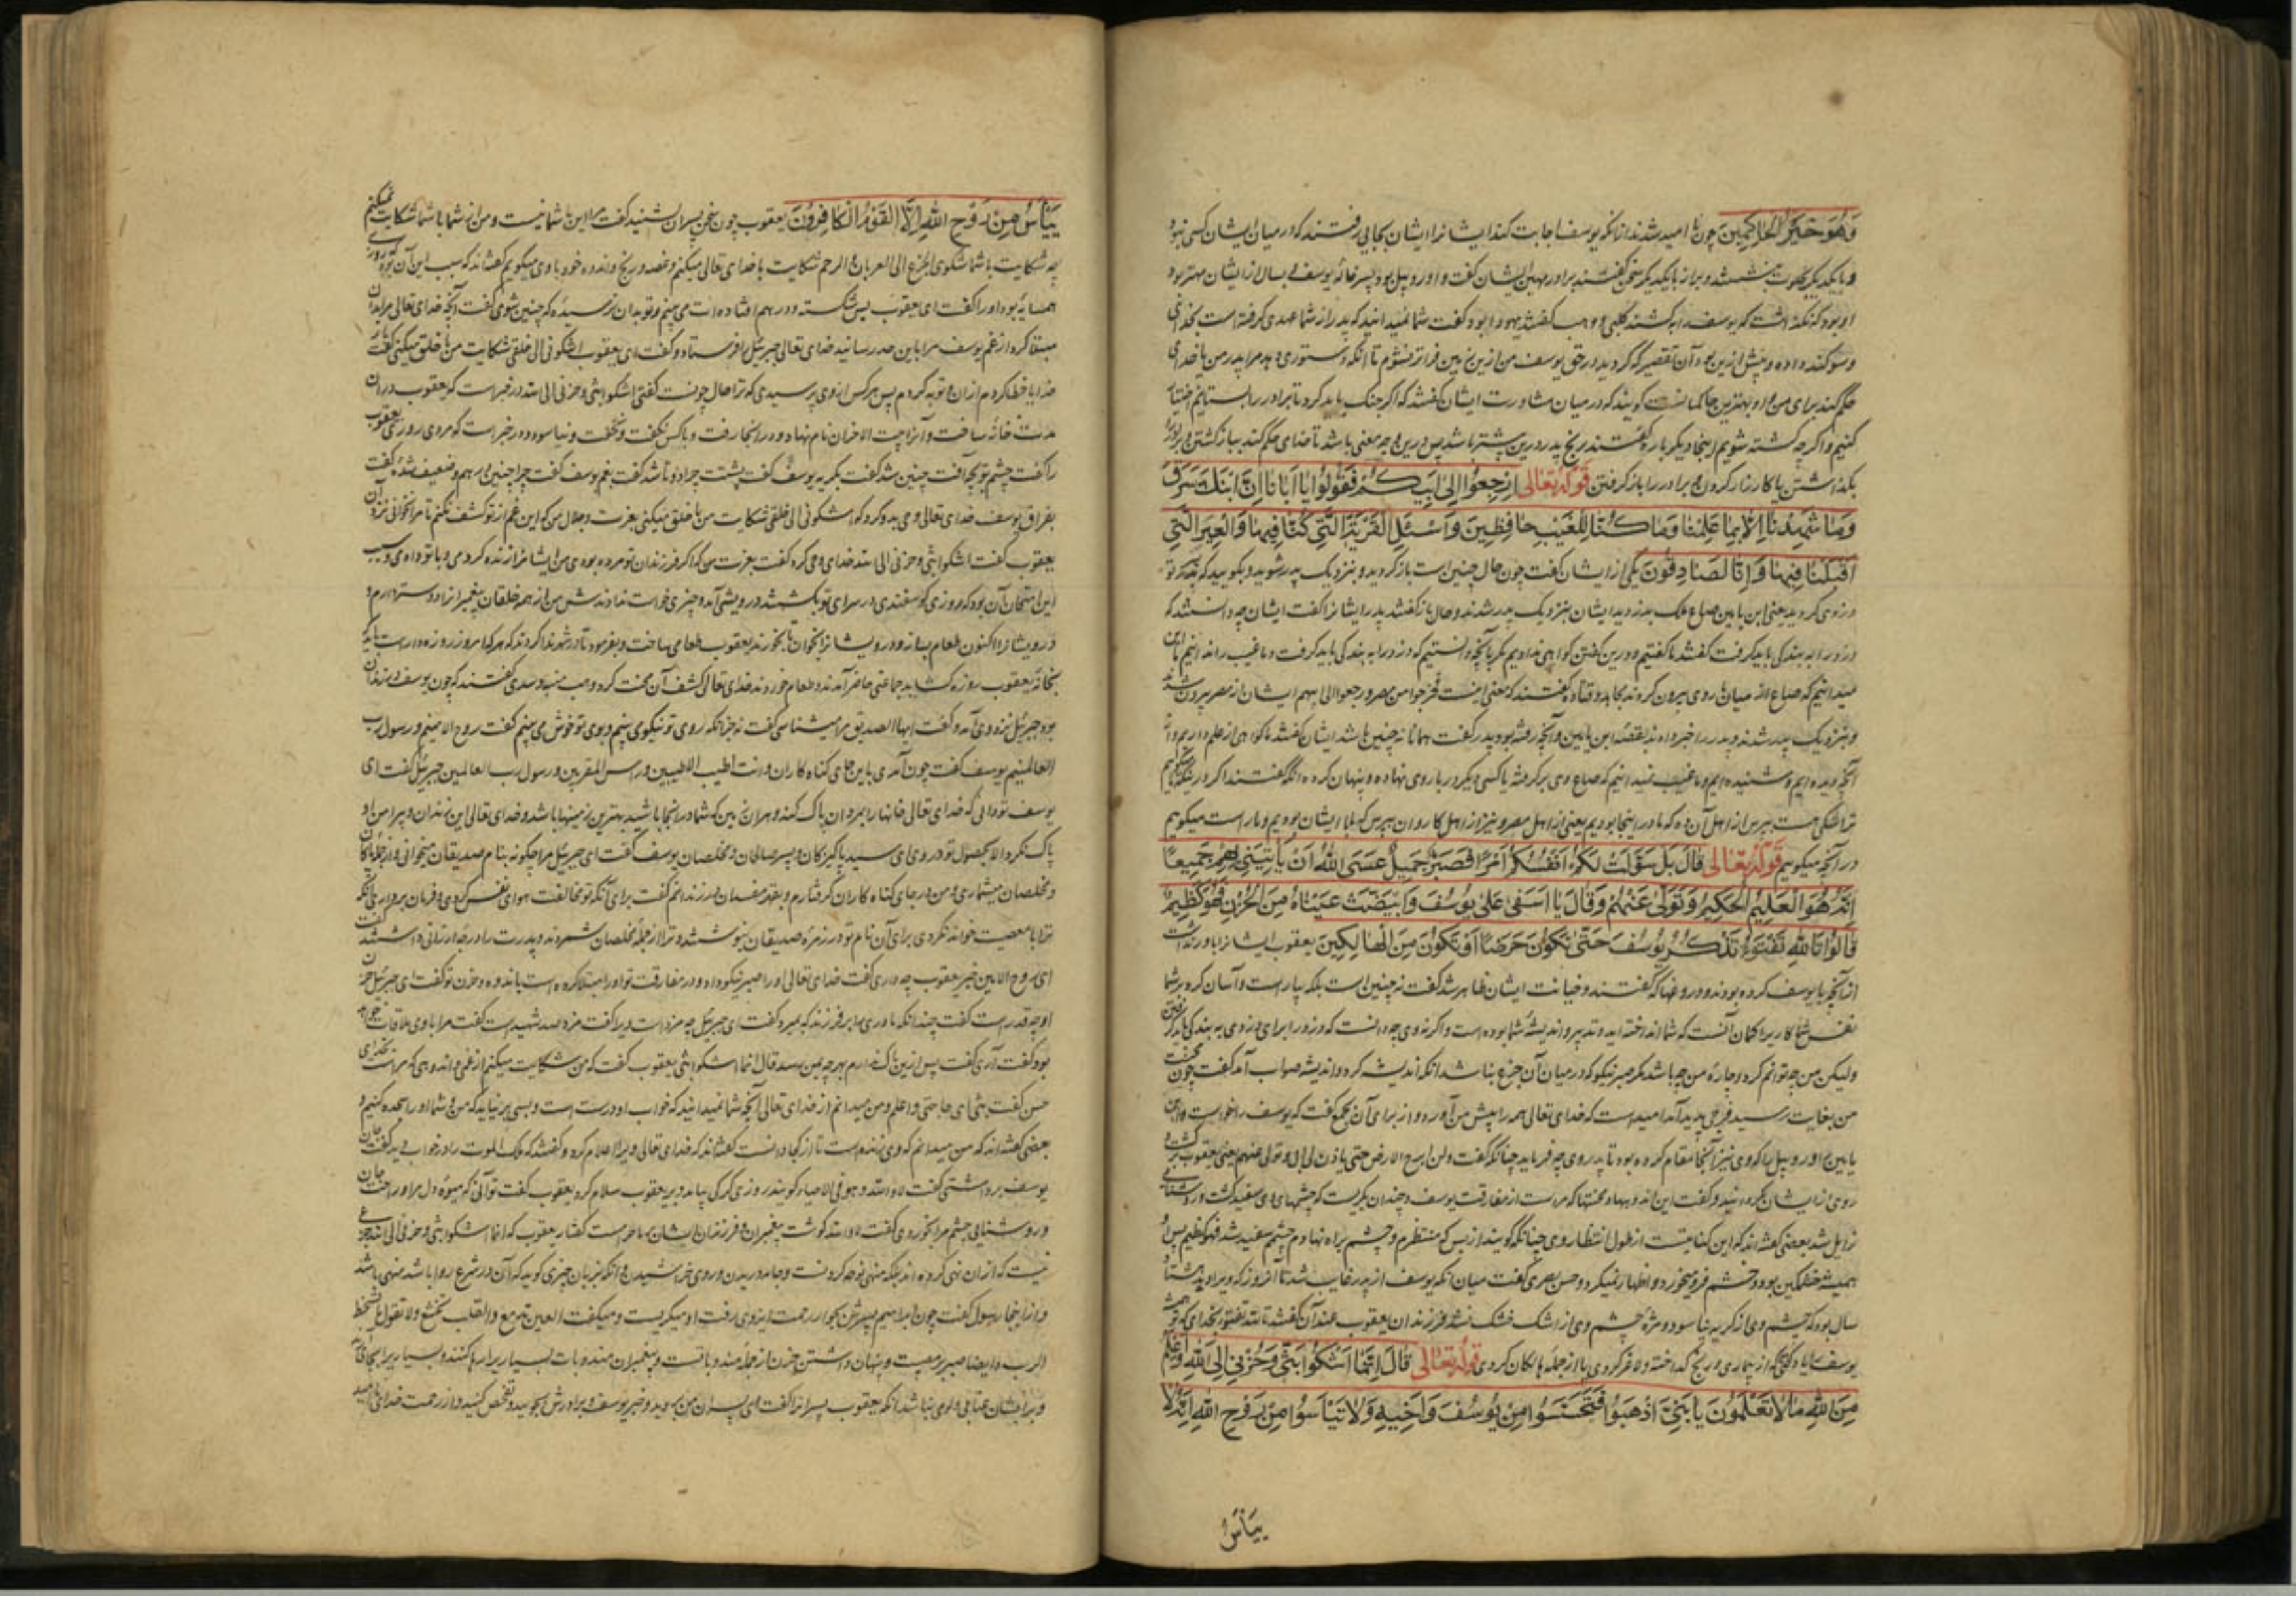 وَهُوَ خَيْرُ الْحَاكِمِينَ چون نا امید شدند از آنکه یوسف اجابت کند ایشانرا ایشان بجایی رفتند که در میان ایشان کسی نبود
و با یکدیگر بخلوت بنشستند و براز با یکدیگر سخن گفتند برادر مهین ایشان گفت و او روبیل بود پسر خاله یوسف بسال از ایشان مهتر بود
او بود که نگذاشت که یوسف را بکشند کلبی و وهب گفتند یهودا بود گفت شما نمیدانید که پدر از شما عهدی گرفته است بخدای
و سوکند داده و پیش ازین بود آن تقصیر که کردید در حق یوسف من ازین زمین فراتر نشوم تا آنکه دستوری دهد مرا پدر من یا خدای
حکم کند برای من و او بهترین حاکمانست گویند که در میان مشاورت ایشان گفتند که اگر جنگ باید کرد تا برادر را بستانیم اختیار
کنیم و اگر چه کشته شویم اینجا دیگر باره گفتند رنج پدر درین بیشتر باشد پس درین چه معنی باشد تا خدای حکم کند بباز گشتن
بگذاشتن یا کارزار کردن و برادر را باز گرفتن قوله تعالی ارْجِعُوا إِلَىٰ أَبِيكُمْ فَقُولُوا يَا أَبَانَا إِنَّ ابْنَكَ سَرَقَ
وَمَا شَهِدْنَا إِلَّا بِمَا عَلِمْنَا وَمَا كُنَّا لِلْغَيْبِ حَافِظِينَ وَاسْئَلِ الْقَرْيَةَ الَّتِي كُنَّا فِيهَا وَالْعِيرَ الَّتِي
أَقْبَلْنَا فِيهَا وَإِنَّا لَصَادِقُونَ یکی از ایشان گفت چون حال چنین است باز گردید و بنزدیک پدر شوید و بگویید که پسر تو
دزدی کرد یعنی ابن یامین صاع ملک بدزدید ایشان بنزدیک پدر شدند و حال باز گفتند پدر ایشانرا گفت ایشان چه دانستند که
دزد را به بندگی باید گرفت گفتند ما گفتیم و درین گفتن گواهی ندادیم مگر بآنچه دانستیم که دزد را به بندگی باید گرفت و ما غیب را ندانیم
میدانیم که صاع از میان بار وی بیرون کردند مجاهد و قتاده گفتند که معنی اینست فخرجوا من مصر و رجعوا الی ابیهم ایشان از مصر بیرون شدند
و بنزدیک پدر شدند و پدر را خبر دادند بقصه ابن یامین و آنچه رفته بود پدر گفت همانا نه چنین باشد ایشان گفتند ما گواهی از علم داریم و از
آنچه دیده ایم و شنیده ایم و ما غیب نمیدانیم که صاع وی برگرفته یا کسی دیگر در بار وی نهاده و پنهان کرده آنگه گفتند اگر درینکه ما میگوییم
ترا شکی هست بپرس از اهل آن ده که ما در اینجا بودیم یعنی از اهل مصر و نیز از اهل کاروان بپرس که با ایشان بودیم و ما راست میگوییم
در آنچه میگوییم قوله تعالی قَالَ بَلْ سَوَّلَتْ لَكُمْ أَنْفُسُكُمْ أَمْرًا فَصَبْرٌ جَمِيلٌ عَسَى اللَّهُ أَنْ يَأْتِيَنِي بِهِمْ جَمِيعًا
إِنَّهُ هُوَ الْعَلِيمُ الْحَكِيمُ وَتَوَلَّىٰ عَنْهُمْ وَقَالَ يَا أَسَفَىٰ عَلَىٰ يُوسُفَ وَابْيَضَّتْ عَيْنَاهُ مِنَ الْحُزْنِ فَهُوَ كَظِيمٌ
قَالُوا تَاللَّهِ تَفْتَؤُا تَذْكُرُ يُوسُفَ حَتَّىٰ تَكُونَ حَرَضًا أَوْ تَكُونَ مِنَ الْهَالِكِينَ یعقوب ایشانرا باور نداشت
از آنچه با یوسف کرده بودند و دروغها که گفتند و خیانت ایشان ظاهر شد گفت نه چنین است بلکه بیاراست و آسان کرد بر شما
نفس شما کار برا گمان آنست که شما انداخته اید و تدبیر و اندیشه شما بوده است و اگر نه وی چه دانست که دزد را برای دزدی به بندگی باید گرفتن
ولیکن من چه توانم کرد و چاره من چه باشد مگر صبر نیکو که در میان آن جزع نباشد آنگه اندیشه کرد و اندیشه صواب آمد گفت چون محنت
من بغایت رسید فرجی پدید آید امید است که خدای تعالی همه را پیش من آورد و از برای آن بجمع گفت که یوسف را خواست و ابن
یامین و روبیل را که وی نیز آنجا مقام کرده بود تا پدر وی چه فرماید چنانکه گفت و لن ابرح الارض حتی یاذن لی ابی و تولی عنهم یعنی یعقوب برگشت و
روی از ایشان بگردانید و گفت این اندوهها و محنتها که مراست از مفارقت یوسف و چندان بگریست که چشمهای وی سفید گشت و روشنایی
زایل شد بعضی گفته اند که این کنایتست از طول انتظار وی چنانکه گویند از بس که منتظرم و چشم براه نهادم چشمم سفید شد فهو کظیم پس او
همیشه خشمگین بود و خشم فرو میخورد و اظهار نمیکرد و حسن بصری گفت میان آنکه یوسف از پدر غایب شد تا آنروز که ویرا دید هشتاد
سال بود که چشم وی از گریه نیاسود و مژه چشم وی از اشک خشک نشد فرزندان یعقوب عند آن گفتند تالله تفتؤ بخدای که تو همیشه
یوسف را یاد کنی تا از بیماری و رنج گداخته و لاغر گردی یا از جمله هالکان گردی قوله تعالی قَالَ إِنَّمَا أَشْكُوا بَثِّي وَحُزْنِي إِلَى اللَّهِ وَأَعْلَمُ
مِنَ اللَّهِ مَا لَا تَعْلَمُونَ يَا بَنِيَّ اذْهَبُوا فَتَحَسَّسُوا مِنْ يُوسُفَ وَأَخِيهِ وَلَا تَيْأَسُوا مِنْ رَوْحِ اللَّهِ إِنَّهُ لَا
ییأس
يَيْأَسُ مِنْ رَوْحِ اللَّهِ إِلَّا الْقَوْمُ الْكَافِرُونَ یعقوب چون سخن پسران بشنید گفت مرا این با شما نیست و من از شما با شما شکایت نمیکنم
چه شکایت با شما شکوی الجزع الی العریان و الرحم شکایت با خدای تعالی میکنم و غصه و رنج و اندوه خود با وی میگویم گفته اند که سبب این آن بود که روزی
همسایه بود او را گفت ای یعقوب بس شکسته و در هم افتاده ات می بینم و تو بدان نرسیده که چنین شوی گفت آنچه خدای تعالی مرا بدان
مبتلا کرد از غم یوسف مرا باین حد رسانید خدای تعالی جبرئیل را فرستاد و گفت ای یعقوب اتشکونی الی خلقی شکایت من با خلق میکنی گفت بار
خدایا خطا کردم از ان و توبه کردم پس هر کس از وی پرسیدی که ترا حال چونست گفتی اشکوا بثی و حزنی الی الله در خبر است که یعقوب در ان
مدت خانه ساخت و آنرا بیت الاحزان نام نهاد و در آنجا رفت و با کس نگفت و نخفت و نیاسود و در خبر است که مردی روزی یعقوب
را گفت چشم تو بچه آفت چنین شد گفت بگریه یوسف گفت پشتت چرا دو تا شد گفت بغم یوسف گفت چرا چنین در هم و ضعیف شده گفت
بفراق یوسف خدای تعالی وحی بدو کرد که اشکونی الی خلقی شکایت من با خلق میکنی بعزت و جلال من که این غم از تو کشف نکنم تا مرا نخوانی نزد آن
یعقوب گفت اشکوا بثی و حزنی الی الله خدای وحی کرد گفت بعزت من که اگر فرزندان تو مرده بودی من ایشانرا زنده کردمی و با تو دادمی و سبب
این امتحان آن بود که روزی گوسفندی در سرای تو بکشتند درویشی آمد و چیزی خواست ندادندش من از همه خلقان پیغمبرانرا دوستر دارم و
درویشانرا اکنون طعام بساز و درویشانرا بخوان تا بخورند یعقوب طعامی ساخت و بفرمود تا در شهر ندا کردند که هر که امروز روزه دار است باید که
بخانه یعقوب روزه گشاید جماعتی حاضر آمدند و طعام خوردند خدای تعالی کشف آن محنت کرد وهب منبه و سدی گفتند که چون یوسف در زندان
بود جبرئیل نزد وی آمد و گفت ایها الصدیق مرا میشناسی گفت نه جز آنکه روی تو نیکو می بینم و بوی تو خوش می بینم گفت روح الامینم و رسول رب
العالمینم یوسف گفت چون آمدی باین جای گناه کاران و انت اطیب الاطیبین و راس المقربین و رسول رب العالمین جبرئیل گفت ای
یوسف تو ندانی که خدای تعالی خانها را بمردان پاک کند و هر ان زمین که شما در آنجا باشید بهترین زمینها باشد و خدای تعالی این زندان و پیرامن او
پاک نکرد الا بحصول تو در وی ای سید پاکیزگان و پسر صالحان و مخلصان یوسف گفت ای جبرئیل مرا چگونه بنام صدیقان میخوانی و از جمله پاکان
و مخلصان میشماری و من در جای گناه کاران گرفتارم و بقید مفسدان در زندانم گفت برای آنکه تو مخالفت هوای نفس کردی و فرمان نبردی زلیخا که
ترا با معصیت خواند نکردی برای آن نام تو در زمره صدیقان بنوشتند و ترا از جمله مخلصان شمردند و پدرت را درجه ارزانی داشتند گفت
ای روح الامین خبر یعقوب چه داری گفت خدای تعالی او را صبر نیکو داد و در مفارقت تو او را مبتلا کرده است باندوه و حزن تو گفت ای جبرئیل حزن
او چه قدر است گفت چندانکه مادری را بر فرزند که بمیرد گفت ای جبرئیل چه مزد است ویرا گفت مزد صد شهید است گفت مرا با وی ملاقات خواهد
بود گفت آری گفت پس ازین باک ندارم بهر چه بمن رسد قال انما اشکوا بثی یعقوب گفت که من شکایت میکنم از غم و اندوهی که مراست بخدای
حسن گفت بثی ای حاجتی و اعلم و من میدانم از خدای تعالی آنچه شما نمیدانید که خواب او درست است و بسی بر نیاید که من و شما او را سجده کنیم و
بعضی گفته اند که من میدانم که وی زنده است تا از کجا دانست گفته اند که خدای تعالی ویرا اعلام کرد و گفتند که ملک الموت را در خواب دید گفت جان
یوسف برداشتی گفت لا و الله و هو فی الاحیاء گویند روزی گرگی بیامد و بر یعقوب سلام کرد یعقوب گفت تو آنی که میوه دل مرا و راحت جان
و روشنایی چشم مرا بخوردی گفت لا و الله گوشت پیغمبران و فرزندان ایشان بر ما حرامست گفتار یعقوب که انما اشکوا بثی و حزنی الی الله جزع
نیست که از ان نهی کرده اند بلکه منهی نوحه کردنست و جامه دریدن و روی خراشیدن و آنکه بزبان چیزی گوید که آن در شرع روا باشد منهی باشد
و از اینجا رسول گفت چون ابراهیم پسرش بجوار رحمت ایزدی رفت او میگریست و میگفت العین تدمع و القلب یخشع و لا نقول ما یسخط
الرب و ایضا صبر بر مصیبت و پنهان داشتن حزن از جمله مندوباتست و پیغمبران مندوبات بسیار را رها کنند
و بر ایشان عتابی و لومی نباشد آنگه یعقوب پسرانرا گفت ای پسران من بروید و خبر یوسف و برادرش بجویید و تفحص کنید و از رحمت خدای نا امید